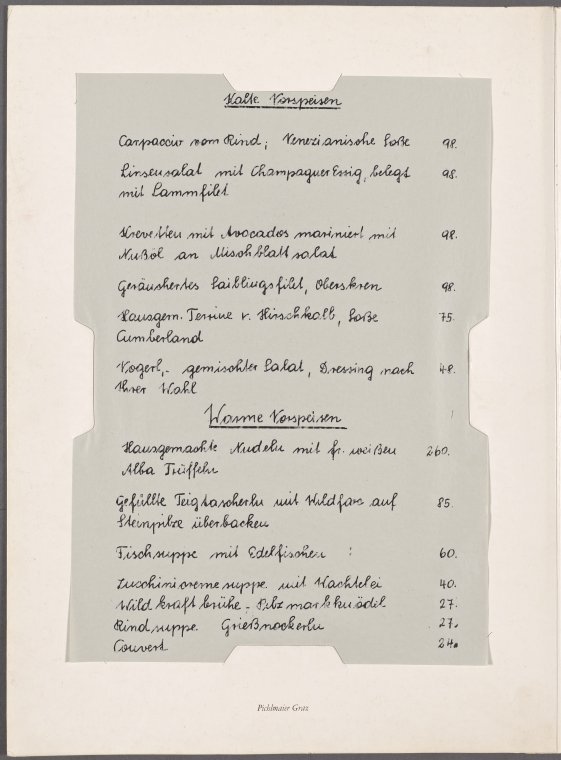 Kalte Vorspeisen
Carpaccio vom Rind, Venezianische Soße 98.
Linsensalat mit Champagner Essig, belegt 98.
mit Lammfilet
Krevetten mit Avocados mariniert mit 98.
Nußöl an Mischblattsalat
Geräuchertes Saiblingsfilet, Oberskren 98.
Hausgem. Terrine v. Hirschkalb, Soße 75.
Cumberland
Vogerl,- gemischter Salat, Dressing nach 48.
Ihrer Wahl
Warme Vorspeisen
Hausgemachte Nudeln mit fr. weißen 260.
Alba Trüffeln
Gefüllte Teigtascherln mit Wildfarc auf 85.
Steinpilze überbacken
Fischsuppe mit Edelfischen : 60.
Zucchinicremesuppe mit Wachtelei 40.
Wildkraftbrühe - Pilzmarkknödel 27.
Rindsuppe Grießnockerln 27.
Couvert 24.
Pichlmaier Graz